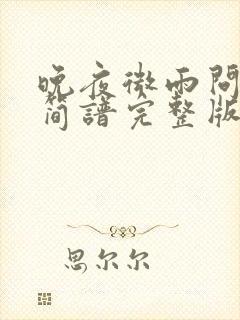 晚夜微雨問
简譜完整版
思尔尔